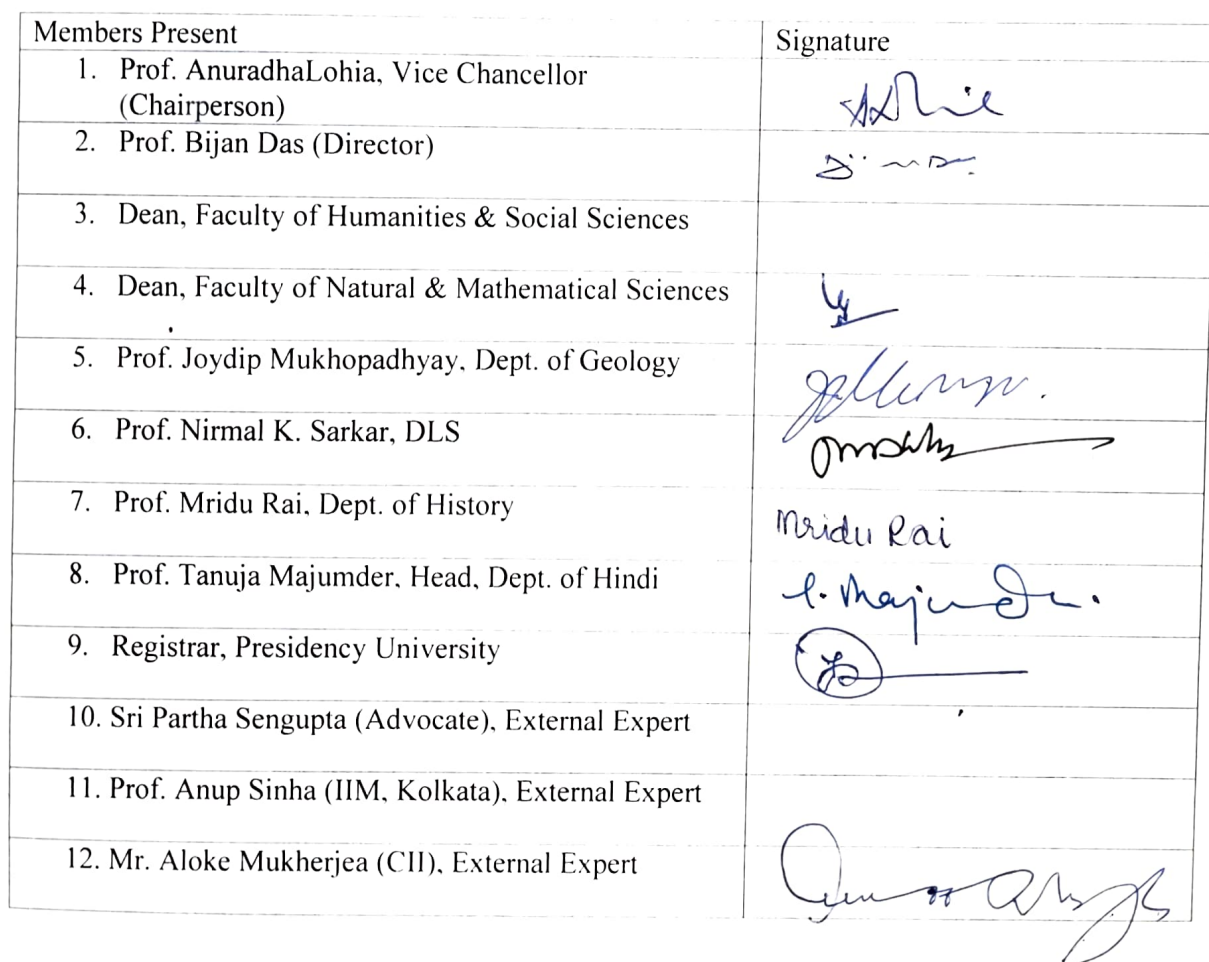 Members Present
Signature
1. Prof. AnuradhaLohia, Vice Chancellor
(Chairperson)
2. Prof. Bijan Das (Director)
3. Dean, Faculty of Humanities & Social Sciences
4. Dean, Faculty of Natural & Mathematical Sciences
5. Prof. Joydip Mukhopadhyay, Dept. of Geology
6. Prof. Nirmal K. Sarkar, DLS
7. Prof. Mridu Rai, Dept. of History
Mridu Rai
8. Prof. Tanuja Majumder, Head, Dept. of Hindi
9. Registrar, Presidency University
10. Sri Partha Sengupta (Advocate), External Expert
11. Prof. Anup Sinha (IIM, Kolkata), External Expert
12. Mr. Aloke Mukherjea (CII), External Expert